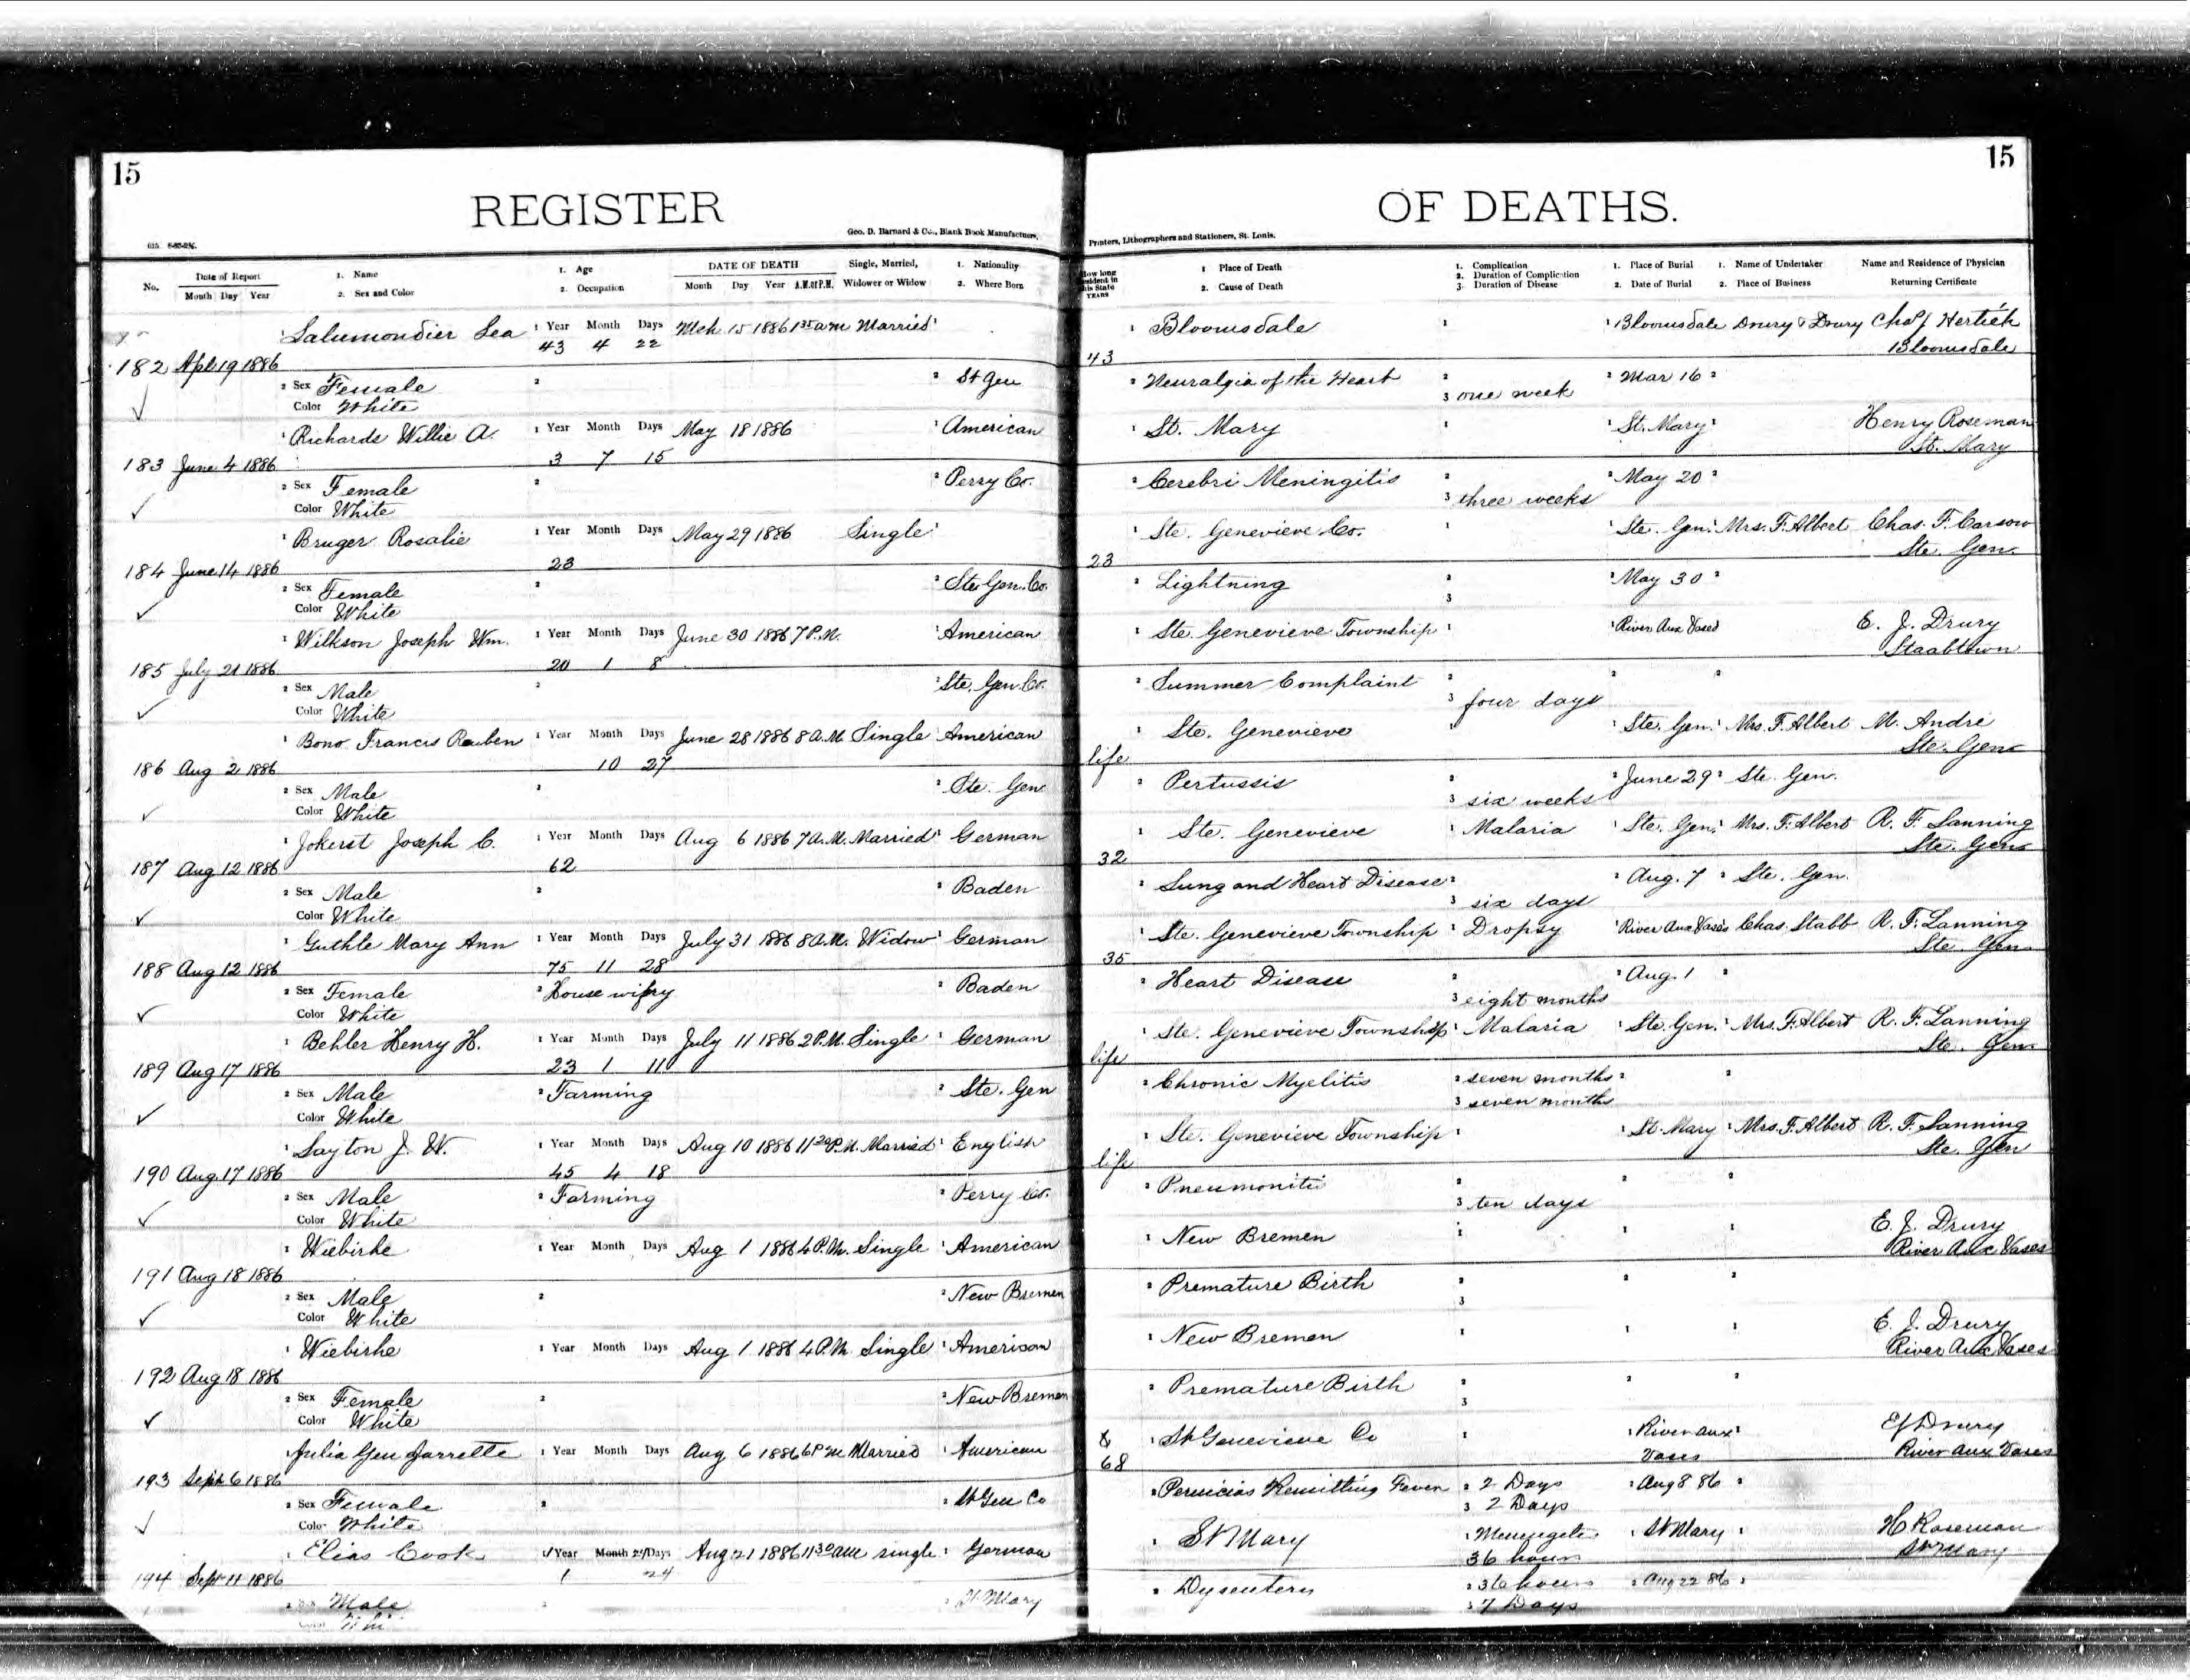 15
15
REGISTER
OF DEATHS.
Geo. D. Barnard & Co., Blank Book Manufacturers,
Printers, Lithographers and Stationers, St. Louis.
No.
Date of Report
Month Day Year
1. Name
2. Sex and Color
1. Age
2. Occupation
DATE OF DEATH
Month Day Year A.M. or P.M.
Single, Married,
Widower or Widow
1. Nationality
2. Where Born
How long resident in this State YEARS
1 Place of Death
2. Cause of Death
1. Complication
2. Duration of Complication
3. Duration of Disease
1. Place of Burial
2. Date of Burial
1. Name of Undertaker
2. Place of Business
Name and Residence of Physician
Returning Certificate
1 Salumondier Lea 1 Year Month Days Mch 15 1886 1 35 am Married 1 1 Bloomsdale 1 1 Bloomsdale Drury & Drury Chas Hertich
43 4 22 Bloomsdale
182 Apl 19 1886 43
2 Sex Female 2 2 St Gen 2 Neuralgia of the Heart 2 2 Mar 16 2
Color White 3 one week
1 Richards Willie A. 1 Year Month Days May 18 1886 1 American 1 St. Mary 1 1 St. Mary 1 Henry Roseman
183 June 4 1886 3 7 15 St. Mary
2 Sex Female 2 2 Perry Co. 2 Cerebri Meningitis 2 2 May 20 2
Color White 3 three weeks
1 Bruger Rosalie 1 Year Month Days May 29 1886 Single 1 1 Ste. Genevieve Co. 1 1 Ste. Gen. 1 Mrs. F. Albert Chas. F. Carsow
184 June 14 1886 23 23 Ste. Gen.
2 Sex Female 2 2 Ste. Gen. Co. 2 Lightning 2 2 May 30 2
Color White 3
1 Wilkson Joseph Wm. 1 Year Month Days June 30 1886 7 P.M. 1 American 1 Ste. Genevieve Township 1 1 River Aux Vases E. J. Drury
185 July 21 1886 20 1 8 Staabtown
2 Sex Male 2 2 Ste. Gen. Co. 2 Summer Complaint 2 2 2
Color White 3 four days
1 Bono Francis Reuben 1 Year Month Days June 28 1886 8 A.M. Single 1 American 1 Ste. Genevieve 1 1 Ste. Gen. 1 Mrs. F. Albert M. Andre
186 Aug 2 1886 10 27 life Ste. Gen.
2 Sex Male 2 2 Ste. Gen. 2 Pertussis 2 2 June 29 2 Ste. Gen.
Color White 3 six weeks
1 Jokerst Joseph C. 1 Year Month Days Aug 6 1886 7 A.M. Married 1 German 1 Ste. Genevieve 1 Malaria 1 Ste. Gen. 1 Mrs. F. Albert R. F. Lanning
187 Aug 12 1886 62 32 Ste. Gen.
2 Sex Male 2 2 Baden 2 Lung and Heart Disease 2 2 Aug. 7 2 Ste. Gen.
Color White 3 six days
1 Guthle Mary Ann 1 Year Month Days July 31 1886 8 A.M. Widow 1 German 1 Ste. Genevieve Township 1 Dropsy 1 River Aux Vases Chas. Stabb R. F. Lanning
188 Aug 12 1886 75 11 28 35 Ste. Gen.
2 Sex Female 2 House wifry 2 Baden 2 Heart Disease 2 2 Aug. 1 2
Color White 3 eight months
1 Behler Henry H. 1 Year Month Days July 11 1886 2 P.M. Single 1 German 1 Ste. Genevieve Township 1 Malaria 1 Ste. Gen. 1 Mrs. F. Albert R. F. Lanning
189 Aug 17 1886 23 1 11 life Ste. Gen.
2 Sex Male 2 Farming 2 Ste. Gen 2 Chronic Myelitis 2 seven months 2 2
Color White 3 seven months
1 Layton J. W. 1 Year Month Days Aug 10 1886 11 30 P.M. Married 1 English 1 Ste. Genevieve Township 1 1 St. Mary 1 Mrs. F. Albert R. F. Lanning
190 Aug. 17 1886 45 4 18 life Ste. Gen
2 Sex Male 2 Farming 2 Perry Co. 2 Pneumonitis 2 2 2
Color White 3 ten days
1 Wiebirhe 1 Year Month Days Aug 1 1886 4 P.M. Single 1 American 1 New Bremen 1 1 1 E. J. Drury
191 Aug 18 1886 River Aux Vases
2 Sex Male 2 2 New Bremen 2 Premature Birth 2 2 2
Color White 3
1 Wiebirhe 1 Year Month Days Aug 1 1886 4 P.M. Single 1 American 1 New Bremen 1 1 1 E. J. Drury
192 Aug 18 1886 River Aux Vases
2 Sex Female 2 2 New Bremen 2 Premature Birth 2 2 2
Color White 3
1 Julia Gen Jarrette 1 Year Month Days Aug 6 1886 6 P m Married 1 American 1 St Genevieve Co 1 1 River aux 1 EJ Drury
193 Sept 6 1886 68 Vases River Aux Vases
2 Sex Female 2 2 St Gen Co 2 Pernicias Remitting Fever 2 2 Days 2 Aug 8 86 2
Color White 3 2 Days
1 Elias Cook 1 Year Month Days Aug 21 1886 11 30 am single 1 German 1 St Mary 1 1 St Mary 1 H Roseman
194 Sept 11 1886 1 24 36 hours St Mary
Male 2 2 St Mary 2 Dysentery 2 36 hours 2 Aug 22 86 2
3 7 Days